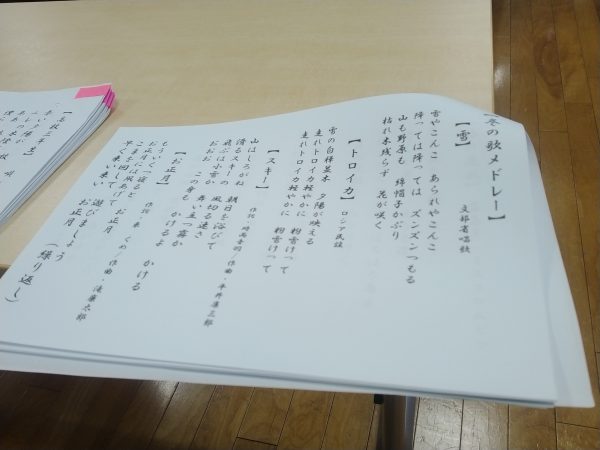 【冬の歌メドレー】
【雪】 文部省唱歌
雪やこんこ あられやこんこ
降っては降っては ズンズンつもる
山も野原も 綿帽子かぶり
枯れ木残らず 花が咲く
【トロイカ】 ロシア民謡
雪の白樺並木 夕陽が映える
走れトロイカ軽やかに 粉雪けって
走れトロイカ軽やかに 粉雪けって
【スキー】 作詞・時雨音羽/作曲・平井康三郎
山はしろがね 朝日を浴びて
滑るスキーの 風切る速さ
飛ぶは小雪か 舞い立つ霧か
おおお この身も かけるよ かける
【お正月】 作詞・東 くめ/作曲・滝廉太郎
もういくつ寝ると お正月
お正月には凧あげて
こまを回して 遊びましょう
早く来い来い お正月 (繰り返し)